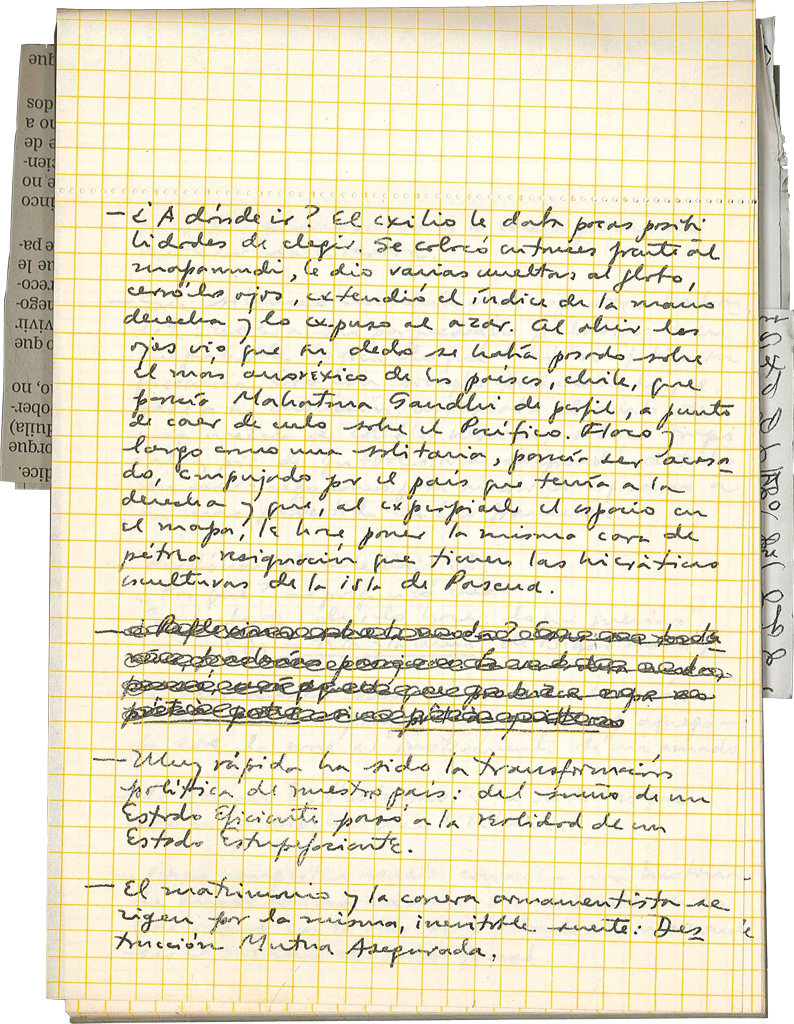 — ¿A dónde ir? El exilio le daba pocas posibi
lidades de elegir. Se colocó entonces frente al
mapamundi, le dio varias vueltas al globo,
cerró los ojos, extendió el índice de la mano
derecha y lo expuso al azar. Al abrir los
ojos vio que su dedo se había posado sobre
el más anoréxico de los países, Chile, que
parecía Mahatma Gandhi de perfil, a punto
de caer de culo sobre el Pacífico. Flaco y
largo como una solitaria, parecía ser acosa
do, empujado por el país que tenía a la
derecha y que, al expropiarle el espacio en
el mapa, le hace poner la misma cara de
pétrea resignación que tienen las hieráticas
esculturas de la isla de Pascua.
— Muy rápida ha sido la transformación
política de nuestro país: del sueño de un
Estado Eficiente pasó a la realidad de un
Estado Estupefaciente.
— El matrimonio y la carrera armamentista se
rigen por la misma, inevitable suerte: Des
trucción Mutua Asegurada.
que
dos
no a
e de
cien-
e no
inco
e pa-
ue le
reco-
nego-
vivir
o que
to, no
ober-
Huila)
porque
dice.